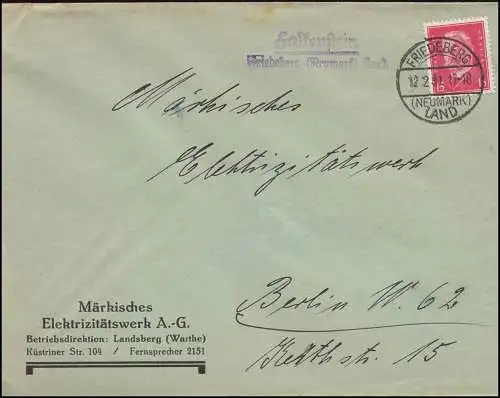 Falkenstein
Friedeberg (Neumark) Land
FRIEDEBERG
12.2.31. 17-18
(NEUMARK)
LAND
15 15
Märkisches
Elektrizitätswerk
Berlin W. 62
15
Märkisches
Elektrizitätswerk A.-G.
Betriebsdirektion: Landsberg (Warthe)
Küstriner Str. 104 / Fernsprecher 2151